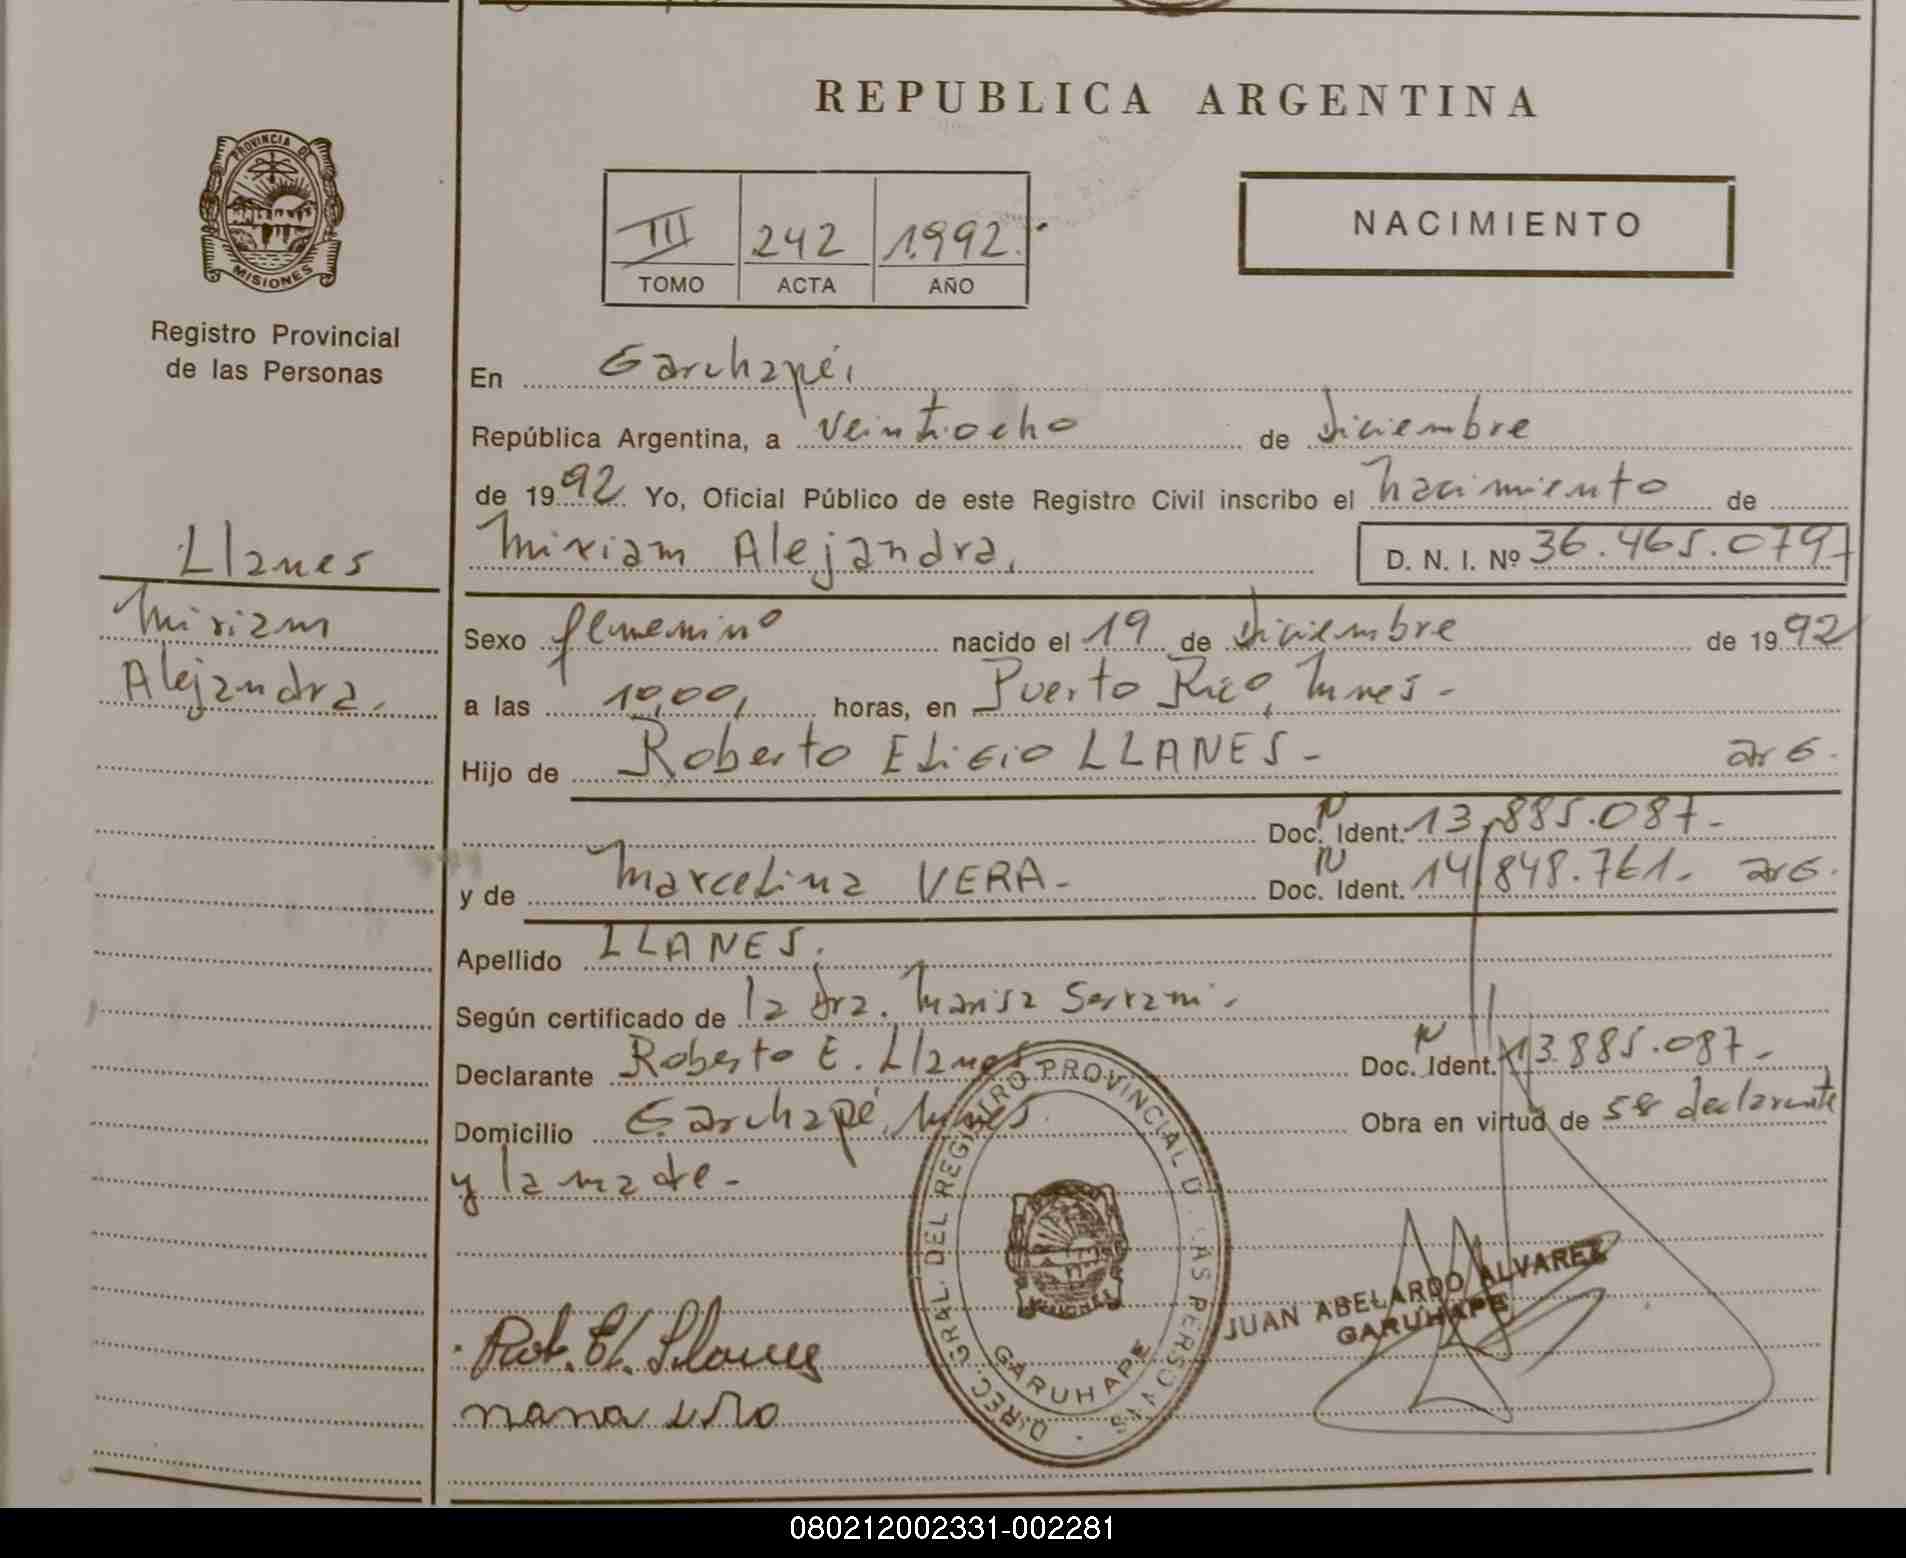 REPUBLICA ARGENTINA
PROVINCIA DE
MISIONES
Registro Provincial
de las Personas
III 242 1992.
TOMO ACTA AÑO
NACIMIENTO
En Garuhapé,
República Argentina, a veintiocho de diciembre
de 1992 Yo, Oficial Público de este Registro Civil inscribo el nacimiento de
Miriam Alejandra, D. N. I. Nº 36.465.079-
Llanes
Miriam
Alejandra.
Sexo femenino nacido el 19 de diciembre de 1992
a las 10,00, horas, en Puerto Rico, Mnes-
Hijo de Roberto Eligio LLANES- arg.
Doc. N Ident. 13.885.087-
y de Marcelina VERA- Doc. N Ident. 14.848.761- arg.
Apellido LLANES.
Según certificado de la dra. Marisa
Declarante Roberto E. Llanes Doc. N Ident. 13.885.087-
Domicilio Garuhapé, Mnes. Obra en virtud de ser declarante
y la madre-
DIREC. GRAL. DEL REGISTRO PROVINCIAL D LAS PERSONAS
GARUHAPE
MISIONES
JUAN ABELARDO ALVAREZ
GARUHAPE
Rob. El. Llanes
080212002331-002281